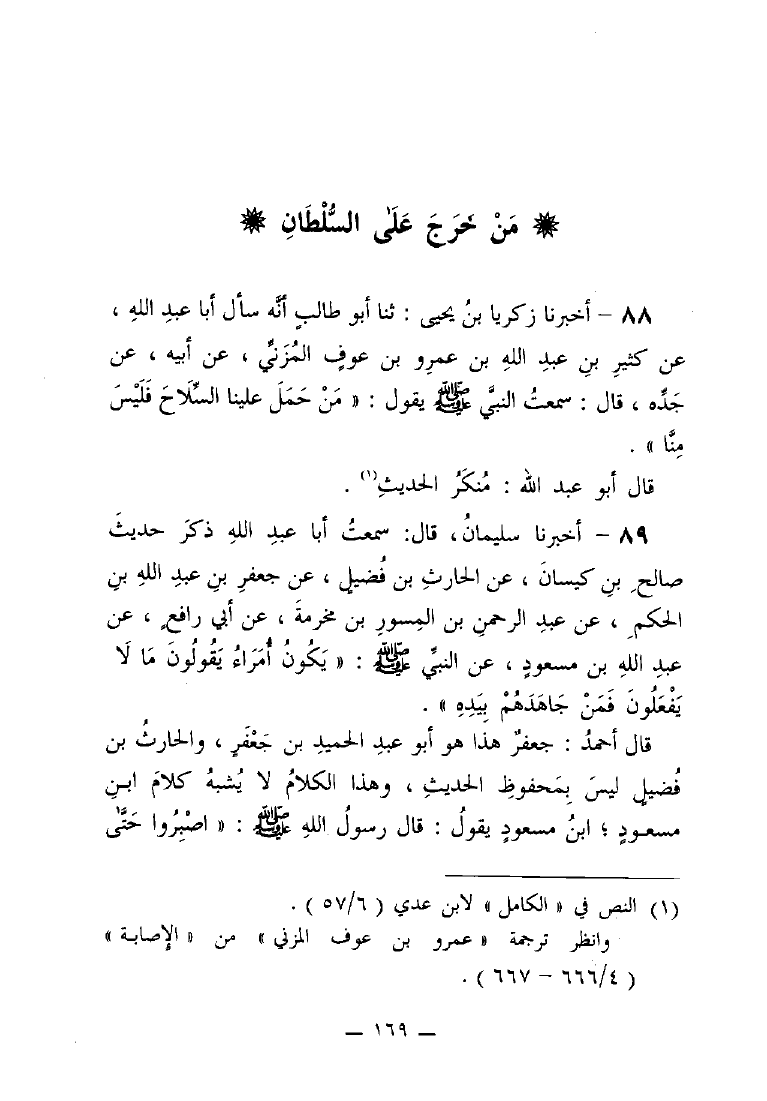 مَنْ خَرَجَ عَلَى السُّلْطَانِ
٨٨ – أخبرنا زكريا بنُ يحيى : ثنا أبو طالبٍ أنَّه سأل أبا عبدِ اللهِ ،
عن كثيرِ بنِ عبدِ اللهِ بن عمرِو بن عوفٍ المُزَنيِّ ، عن أبيه ، عن
جَدِّه ، قال : سمعتُ النبيَّ ﷺ يقول : « مَنْ حَمَلَ علينا السِّلَاحَ فَلَيْسَ
مِنَّا » .
قال أبو عبد الله : مُنكَرُ الحديثِ(١) .
٨٩ – أخبرنا سليمانُ، قال: سمعتُ أبا عبدِ اللهِ ذكرَ حديثَ
صالحِ بنِ كيسانَ ، عن الحارثِ بن فُضيلٍ ، عن جعفرِ بنِ عبدِ اللهِ بنِ
الحكمِ ، عن عبدِ الرحمنِ بن المِسورِ بن مخرمةَ ، عن أبي رافعٍ ، عن
عبدِ اللهِ بن مسعودٍ ، عن النبيِّ ﷺ : « يَكُونُ أُمَرَاءُ يَقُولُونَ مَا لَا
يَفْعَلُونَ فَمَنْ جَاهَدَهُمْ بِيَدِهِ » .
قال أحمدُ : جعفرٌ هذا هو أبو عبدِ الحميدِ بن جَعْفَرٍ ، والحارثُ بن
فُضيلٍ ليسَ بِمَحفوظِ الحديثِ ، وهذا الكلامُ لا يُشبهُ كلامَ ابنِ
مسعودٍ ؛ ابنُ مسعودٍ يقولُ : قال رسولُ اللهِ ﷺ : « اصْبِرُوا حَتَّى
(١) النص في « الكامل » لابن عدي ( ٥٧/٦ ) .
وانظر ترجمة « عمرو بن عوف المزني » من « الإصابة »
( ٦٦٦/٤ – ٦٦٧ ) .
— ١٦٩ —